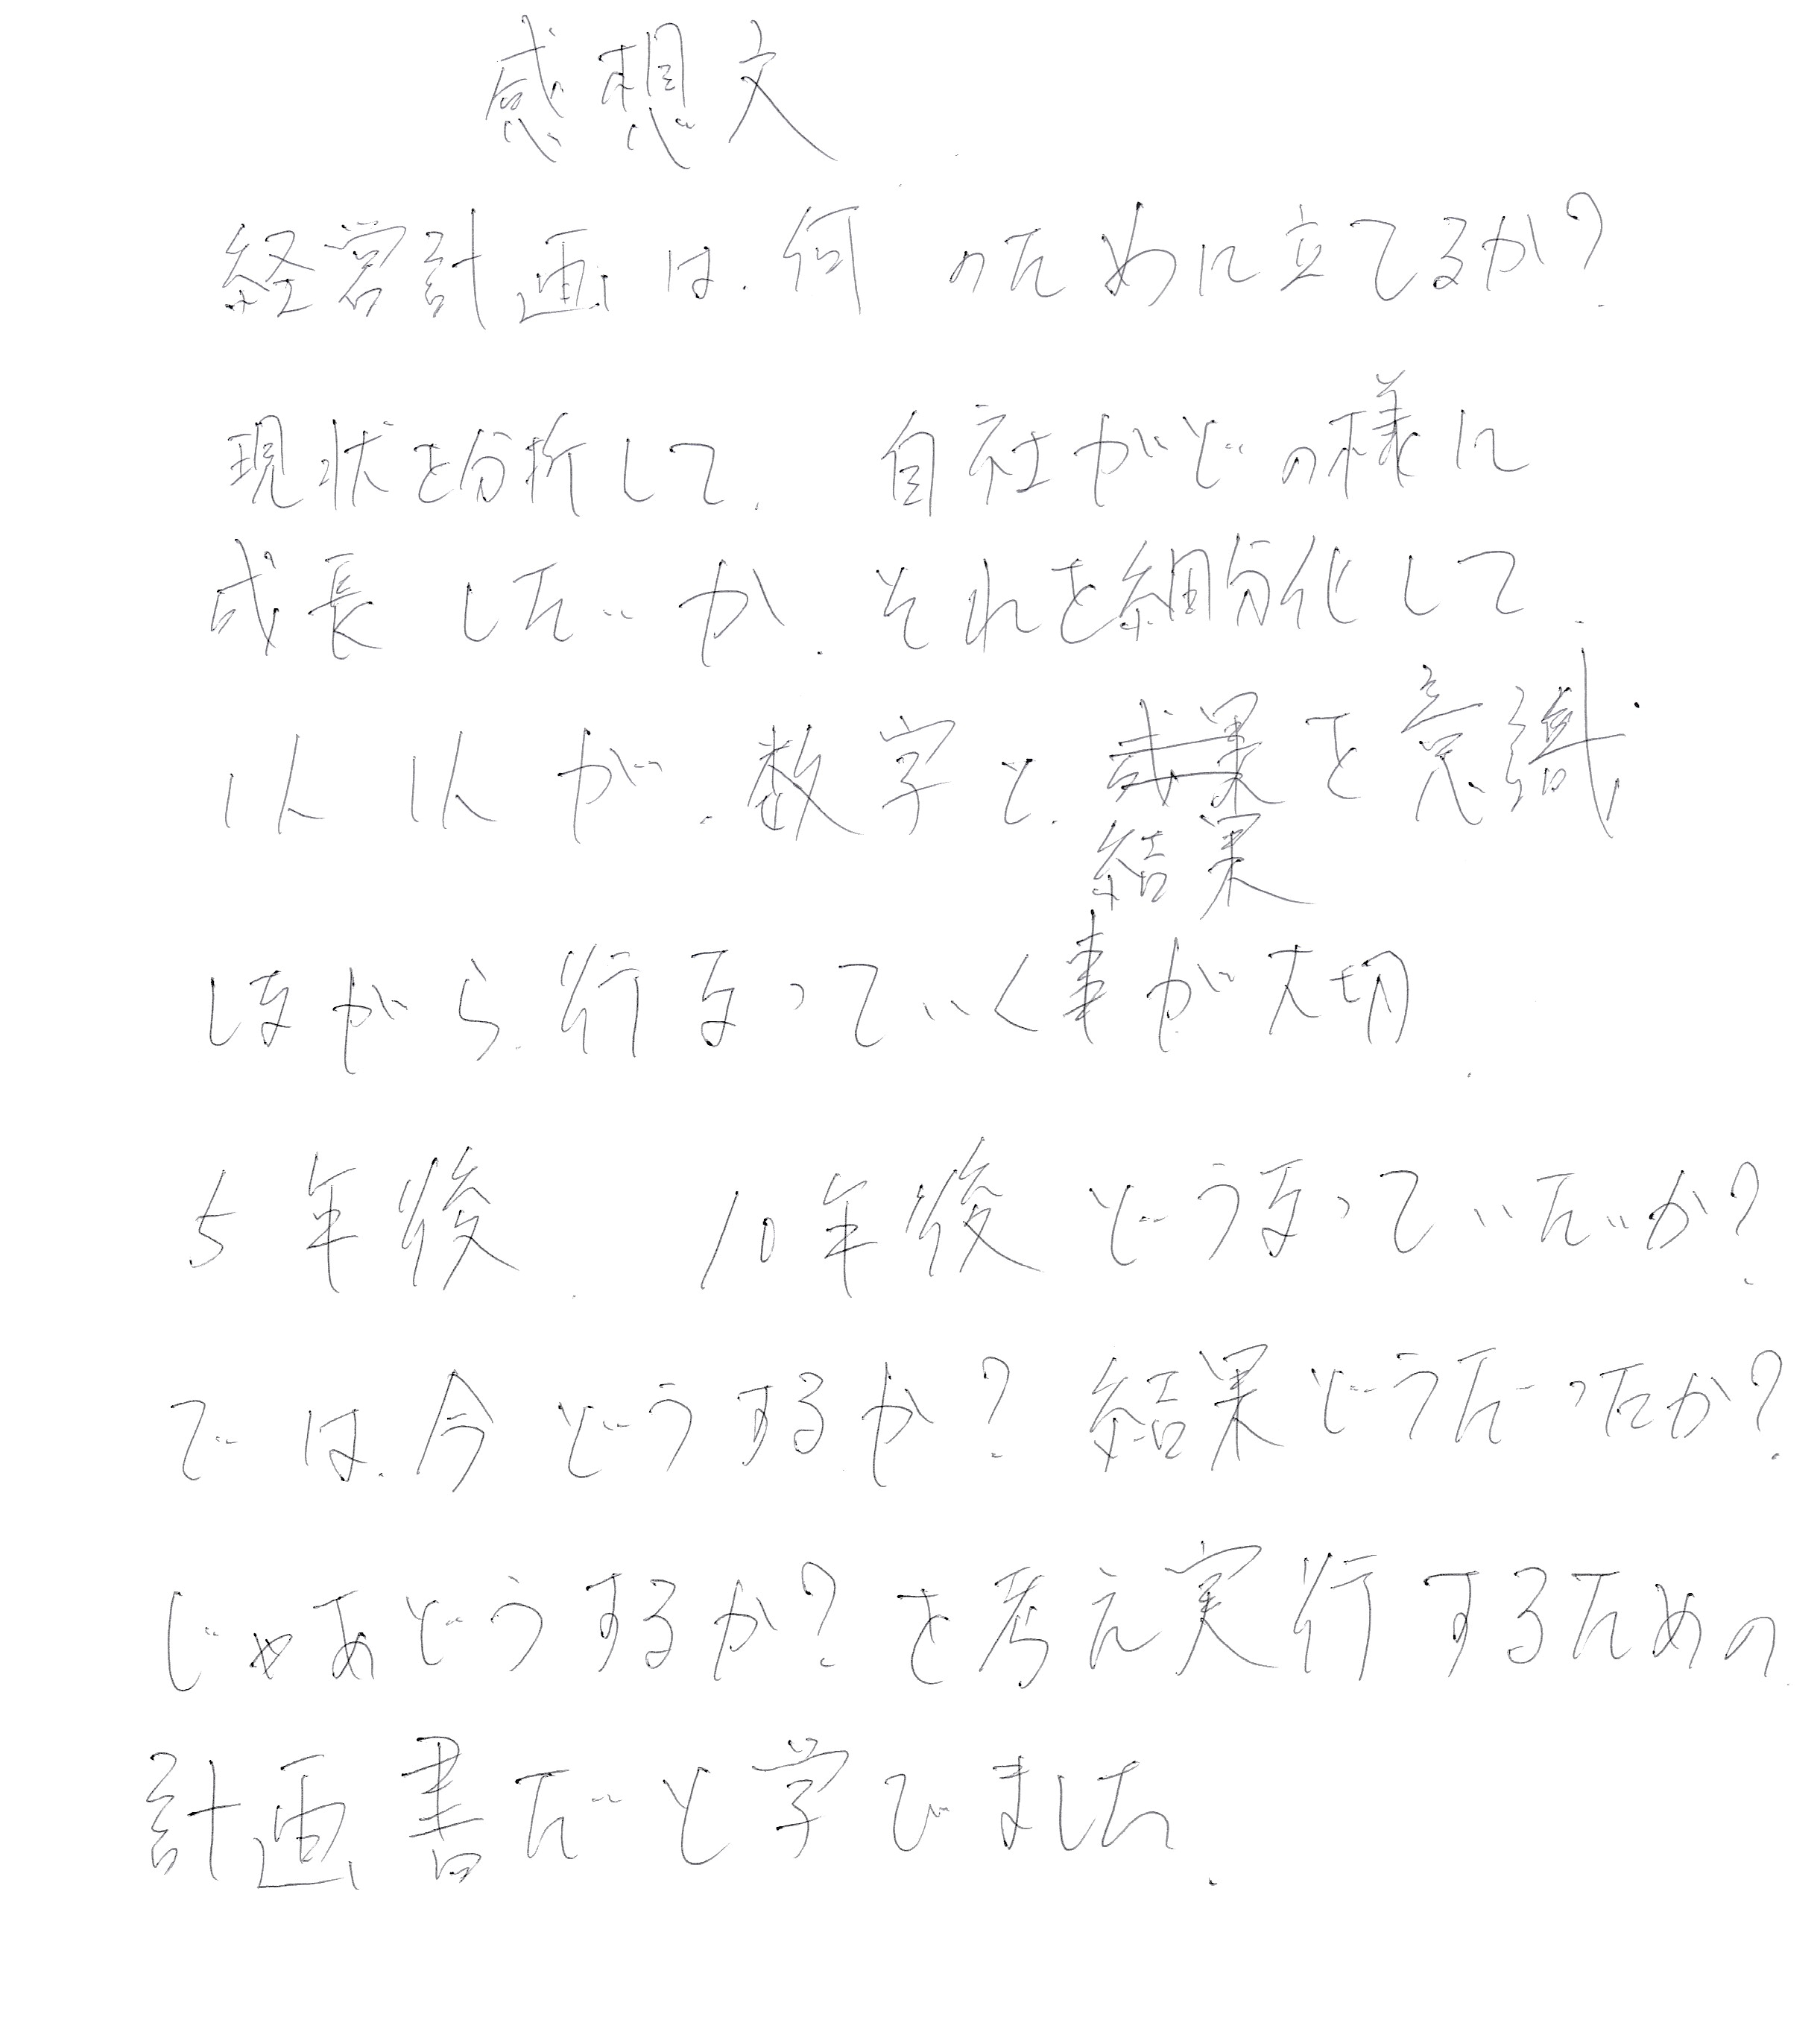 感想文
経営計画は、何のために立てるか？
現状を分析して、自社がどの様に
成長したいか、それを細分化して、
1人1人が、数字と、成果を意識
結果
しながら、行なっていく事が大切、
5年後、10年後どうなっていたいか？
では、今どうするか？結果どうだったか？
じゃあどうするか？を考え実行するための
計画書だと学びました。